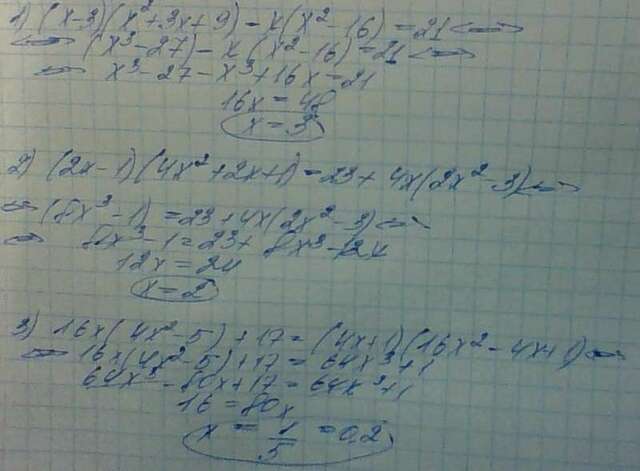 1) (x-3)(x²+3x+9) - x(x²-16) = 21 <=>
<=> (x³-27) - x(x²-16) = 21 <=>
<=> x³-27-x³+16x=21
16x=48
x=3
2) (2x-1)(4x²+2x+1)=23+4x(2x²-3) <=>
<=> (8x³-1)=23+4x(2x²-3) <=>
<=> 8x³-1=23+8x³-12x
12x=24
x=2
3) 16x(4x²-5)+17=(4x+1)(16x²-4x+1) <=>
<=> 16x(4x²-5)+17=64x³+1
64x³-80x+17=64x³+1
16=80x
x=1/5=0,2